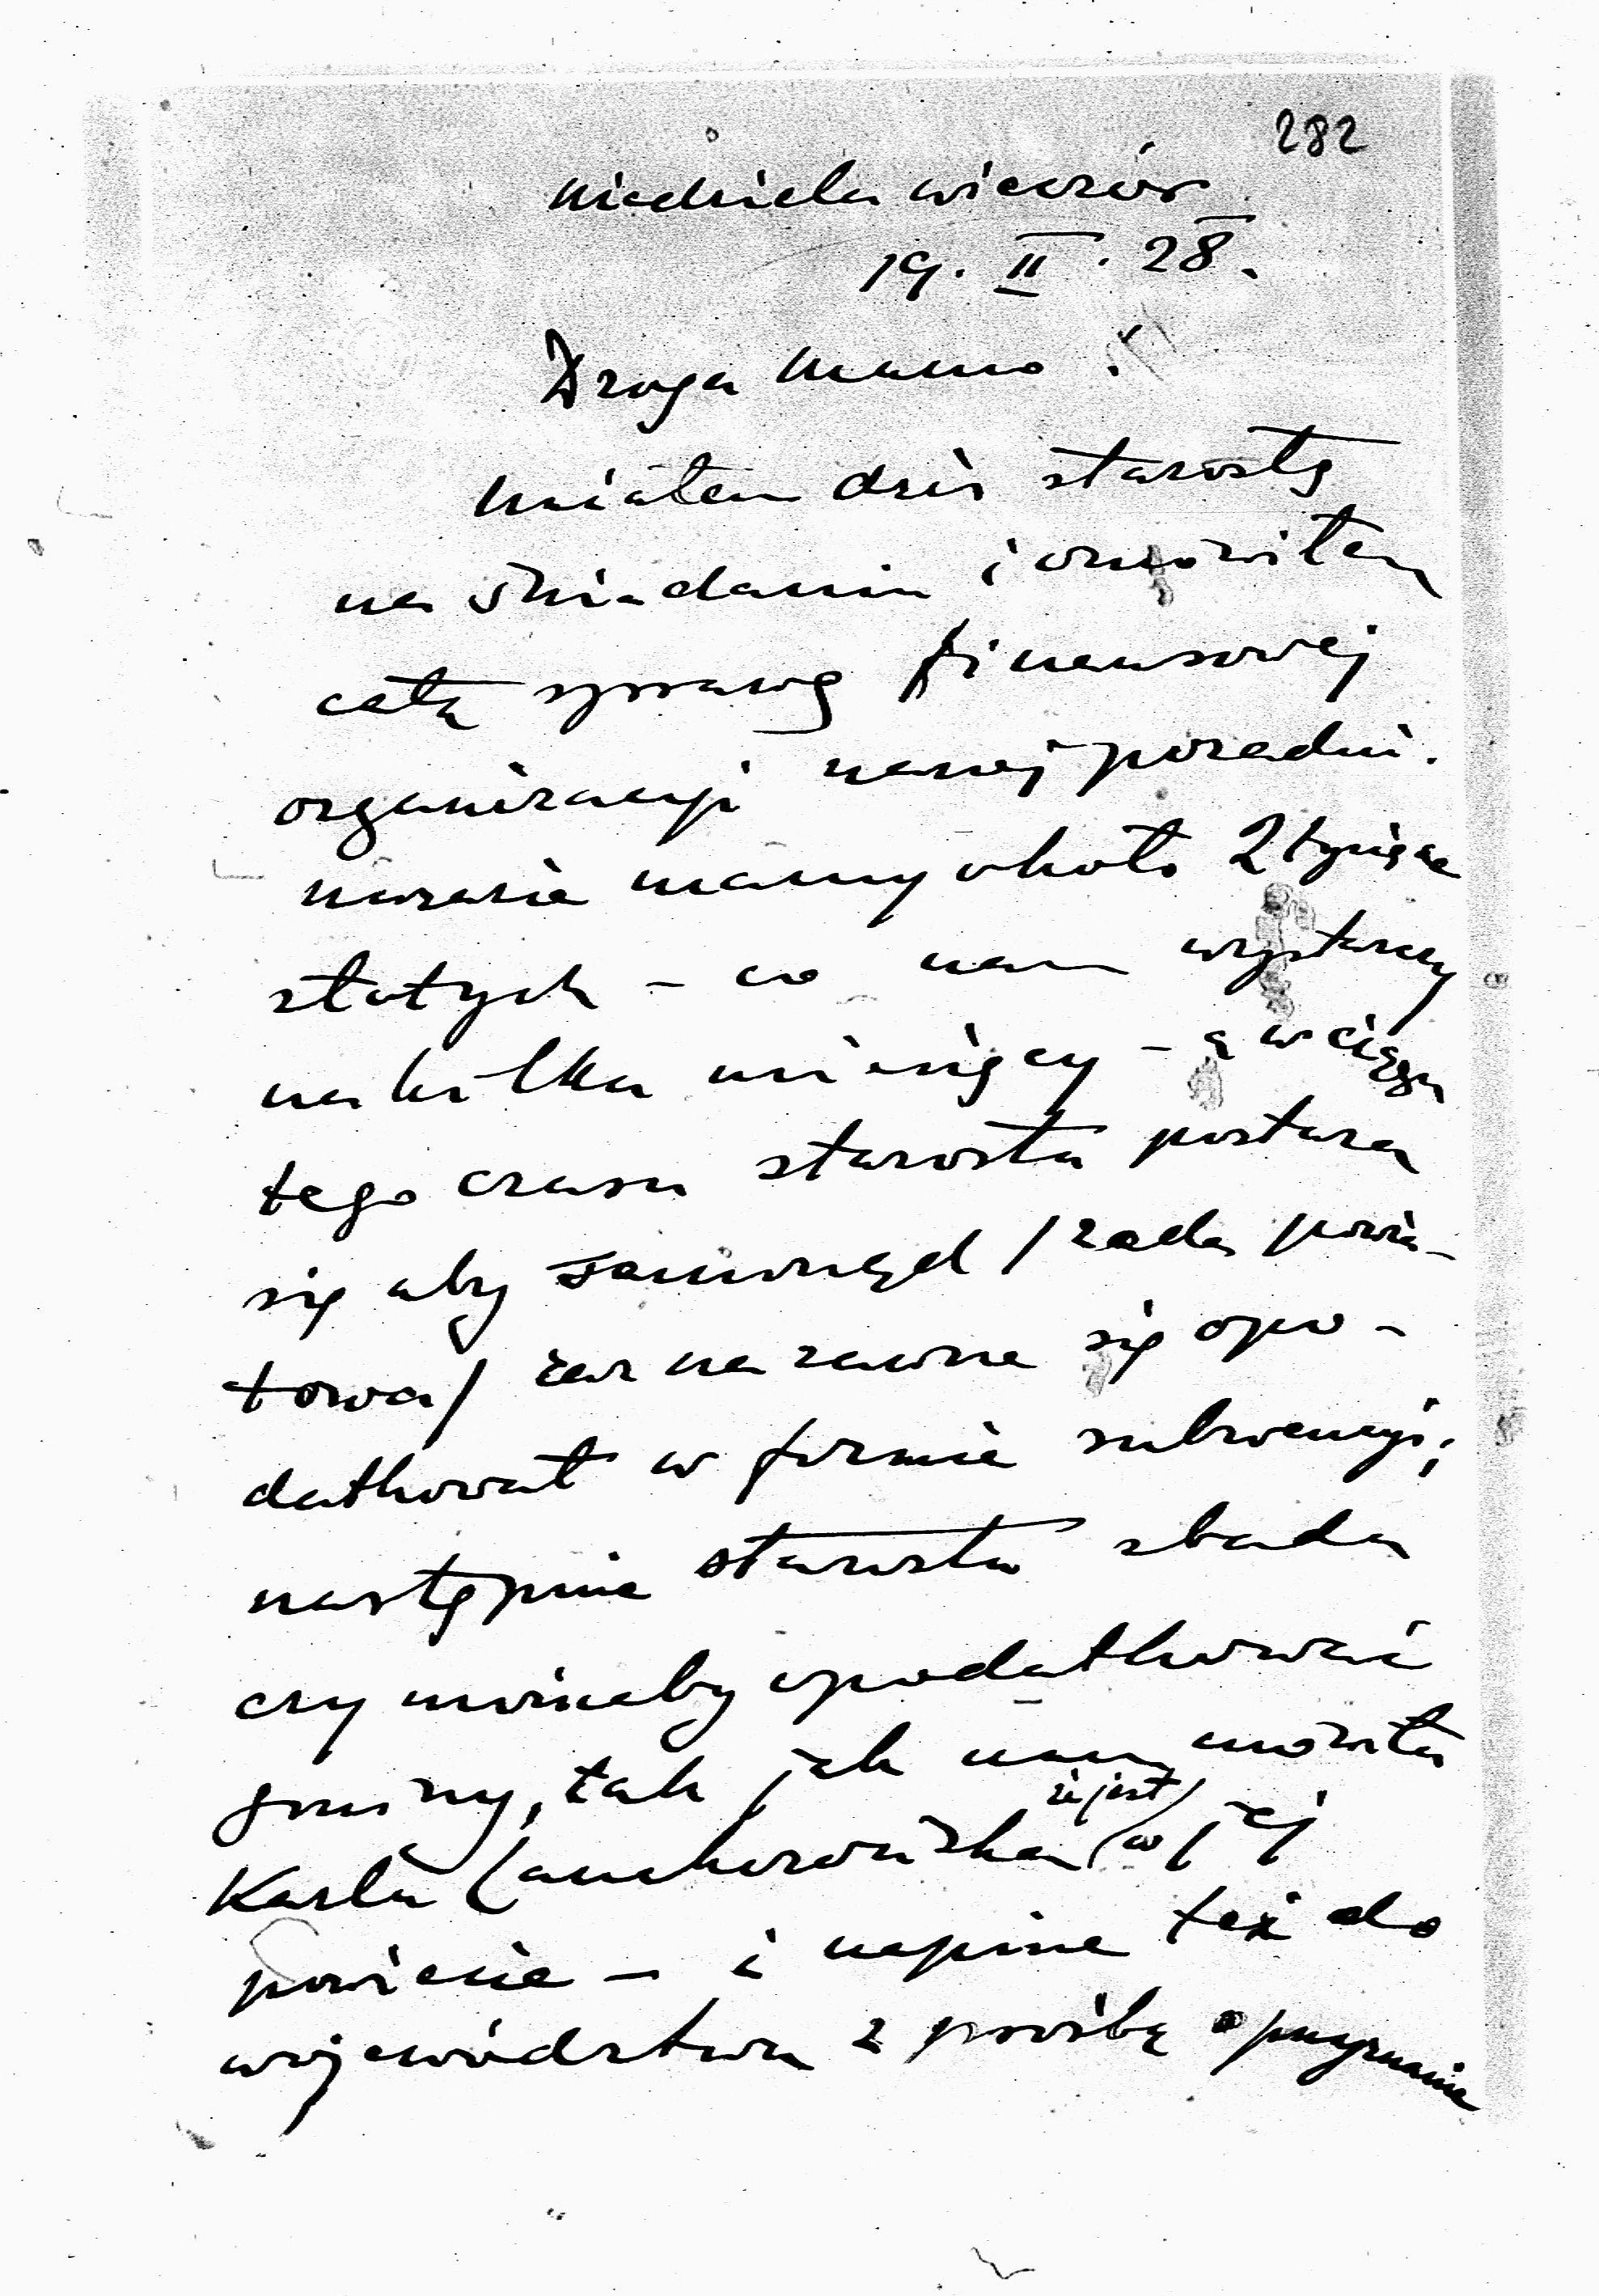 282
niedziela wieczór
19. II. 28.
Droga Mamo!
Miałem dziś starostę
na śniadaniu i omówiłem
całą sprawę finansowej
organizacji naszej poradni.
Narazie mamy około 2 tysiące
złotych – co nam wystarczy
na kilka miesięcy – a w ciągu
tego czasu starosta postara
się aby samorząd /rada powia-
towa/ raz na zawsze się opo-
datkował w formie subwencji;
następnie starosta zbada
czy możnaby opodatkować
gminy, tak jak nam mówiła
że jest
Karla Lanckorońska w jej
powiecie – i napisze też do
województwa z prośbą o przyznanie